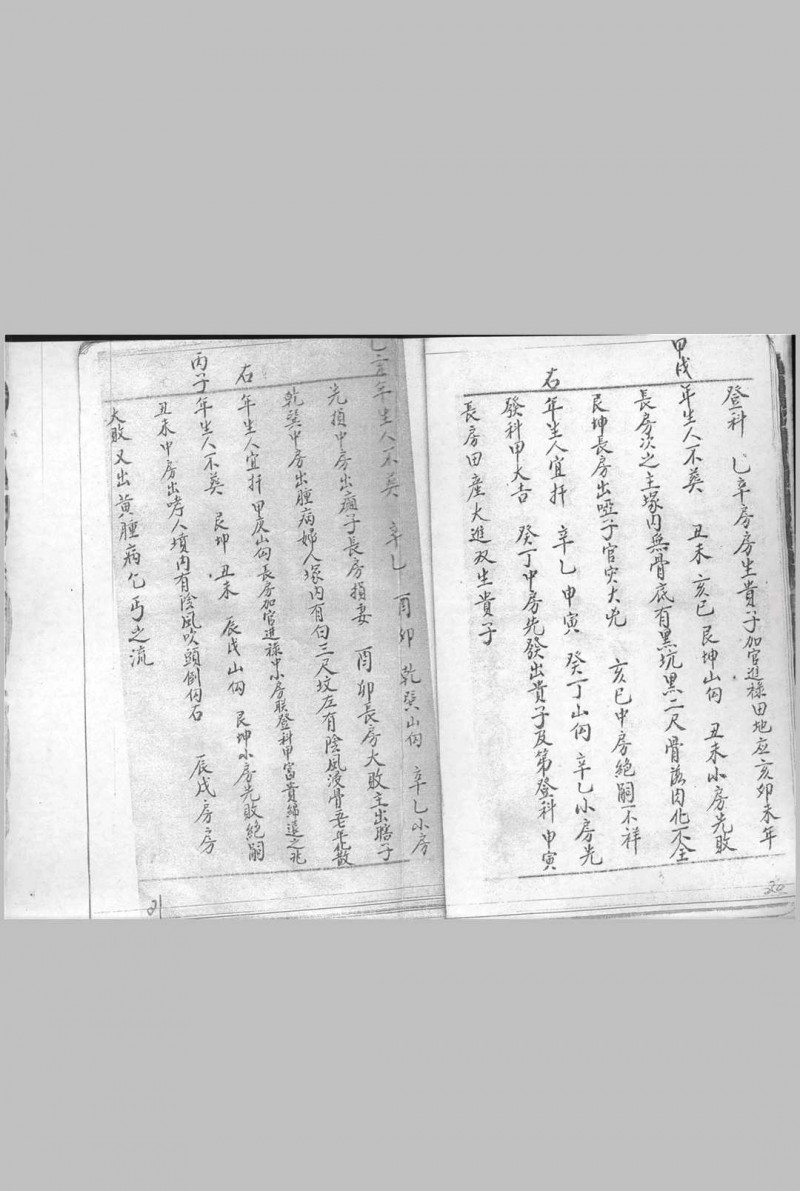 登科　乙辛房房生貴子加官進祿田地应亥卯未年
甲戌年生人不葬　丑未亥巳艮坤山向　丑未小房先敗
長房次之主塚内無骨底有黑坑黑二尺骨 内化不全
艮坤長房出啞子官灾大凶　亥巳中房絕嗣不祥
右年生人宜扦　辛乙申寅癸丁山向　辛乙小房先
發科甲大吉　癸丁中房先發出貴子及第登科　申寅
長房田產大進双生貴子
20
乙亥年生人不葬　辛乙　酉卯　乾巽山向　辛乙小房
先損中房出 子長房損妻　酉卯長房大敗主出瞎子
乾巽中房出腫病婦人塚内有白三尺坟左有陰風 骨 年化散
右年生人宜扦甲庚山向長房加官進祿中小房联登科甲富貴綿遠之兆
丙子年生人不葬　艮坤丑未　辰戌山向　艮坤小房先敗絕嗣
丑未中房出孝人墳内有陰風吹頭倒向右　辰戌房房
大敗又出黃腫病乞丐之流
21